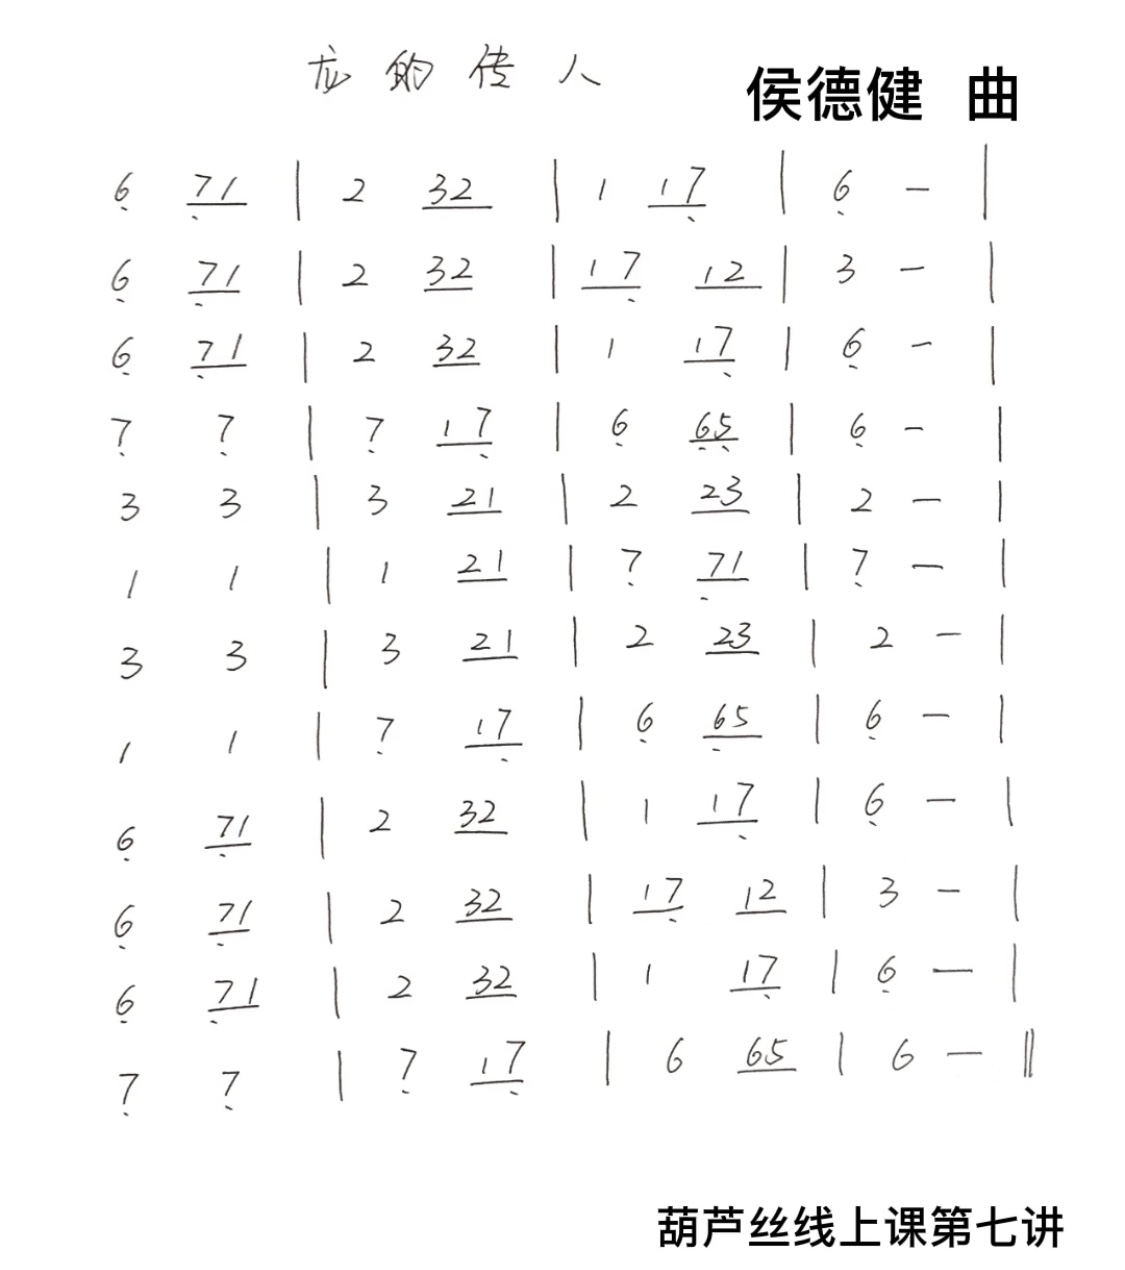 龙的传人 侯德健 曲
6̣ 7̣1 | 2 32 | 1 17̣ | 6̣ — |
6̣ 7̣1 | 2 32 | 17̣ 12 | 3 — |
6̣ 7̣1 | 2 32 | 1 17̣ | 6̣ — |
7̣ 7̣ | 7̣ 17̣ | 6̣ 6̣5̣ | 6̣ — |
3 3 | 3 21 | 2 23 | 2 — |
1 1 | 1 21 | 7̣ 7̣1 | 7̣ — |
3 3 | 3 21 | 2 23 | 2 — |
1 1 | 7̣ 17̣ | 6̣ 6̣5 | 6̣ — |
6̣ 7̣1 | 2 32 | 1 17̣ | 6̣ — |
6̣ 7̣1 | 2 32 | 17̣ 12 | 3 — |
6̣ 7̣1 | 2 32 | 1 17̣ | 6̣ — |
7̣ 7̣ | 7̣ 17̣ | 6 65 | 6 — ‖
葫芦丝线上课第七讲